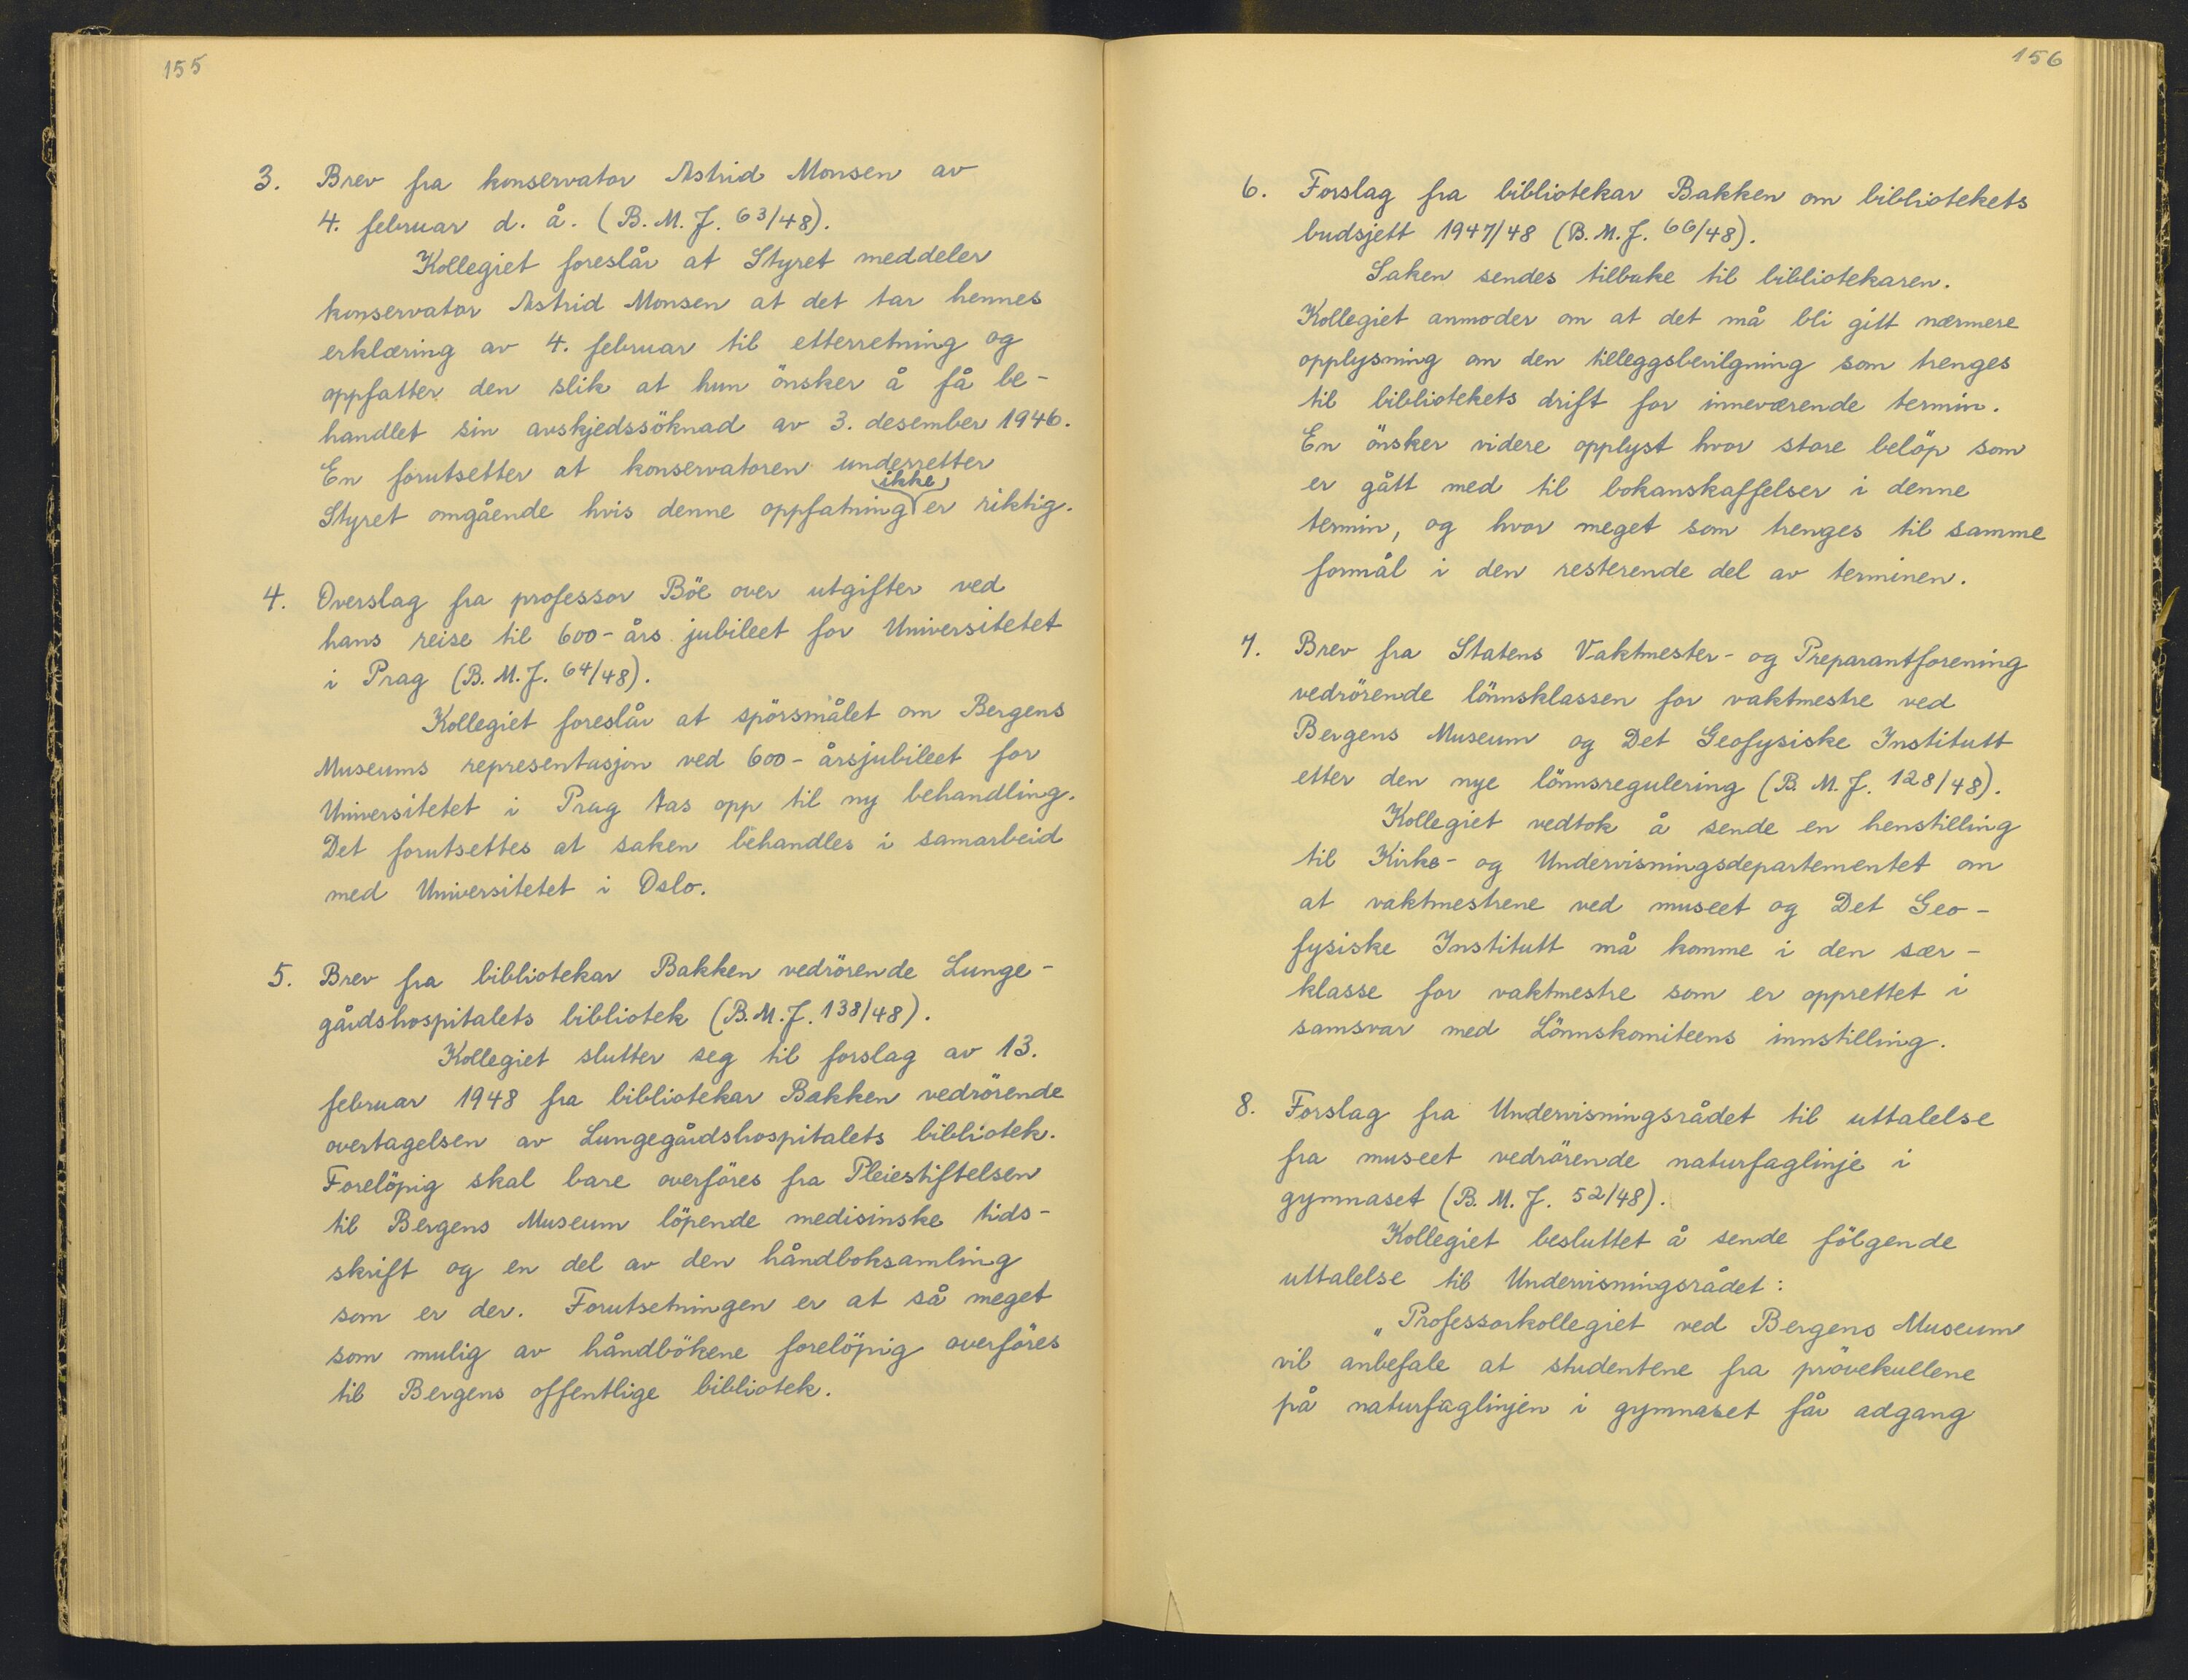 155
3. Brev fra konservator Astrid Monsen av
4. februar d. å. (B. M. J. 63/48).
Kollegiet foreslår at Styret meddeler
konservator Astrid Monsen at det tar hennes
erklæring av 4. februar til etterretning og
oppfatter den slik at hun önsker å få be-
handlet sin avskjedssöknad av 3. desember 1946.
En forutsetter at konservatoren underretter
ikke
Styret omgående hvis denne oppfatning er riktig.
4. Overslag fra professor Böe over utgifter ved
hans reise til 600-års jubileet for Universitetet
i Prag (B. M. J. 64/48).
Kollegiet foreslår at spörsmålet om Bergens
Museums representasjon ved 600-årsjubileet for
Universitetet i Prag tas opp til ny behandling.
Det forutsettes at saken behandles i samarbeid
med Universitetet i Oslo.
5. Brev fra bibliotekar Bakken vedrörende Lunge-
gårdshospitalets bibliotek (B. M. J. 138/48).
Kollegiet slutter seg til forslag av 13.
februar 1948 fra bibliotekar Bakken vedrörende
overtagelsen av Lungegårdshospitalets bibliotek.
Forelöpig skal bare overföres fra Pleiestiftelsen
til Bergens Museum löpende medisinske tids-
skrift og en del av den håndboksamling
som er der. Forutsetningen er at så meget
som mulig av håndbökene forelöpig overföres
til Bergens offentlige bibliotek.
156
6. Forslag fra bibliotekar Bakken om bibliotekets
budsjett 1947/48 (B. M. J. 66/48).
Saken sendes tilbake til bibliotekaren.
Kollegiet anmoder om at det må bli gitt nærmere
opplysning om den tilleggsbevilgning som trenges
til bibliotekets drift for inneværende termin.
En önsker videre opplyst hvor store belöp som
er gått med til bokanskaffelser i denne
termin, og hvor meget som trenges til samme
formål i den resterende del av terminen.
7. Brev fra Statens Vaktmester- og Preparantforening
vedrörende lönnsklassen for vaktmestre ved
Bergens Museum og Det Geofysiske Institutt
etter den nye lönnsregulering (B. M. J. 128/48).
Kollegiet vedtok å sende en henstilling
til Kirke- og Undervisningsdepartementet om
at vaktmestrene ved museet og Det Geo-
fysiske Institutt må komme i den sær-
klasse for vaktmestre som er opprettet i
samsvar med Lönnskomiteens innstilling.
8. Forslag fra Undervisningsrådet til uttalelse
fra museet vedrörende naturfaglinje i
gymnaset (B. M. J. 52/48).
Kollegiet besluttet å sende fölgende
uttalelse til Undervisningsrådet:
„Professorkollegiet ved Bergens Museum
vil anbefale at studentene fra prövekullene
på naturfaglinjen i gymnaset får adgang